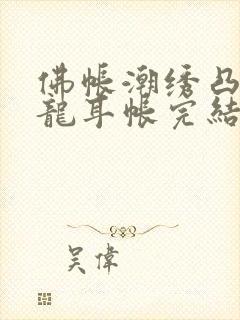 佛帳潮绣凸
龍耳帳完結
吴偉